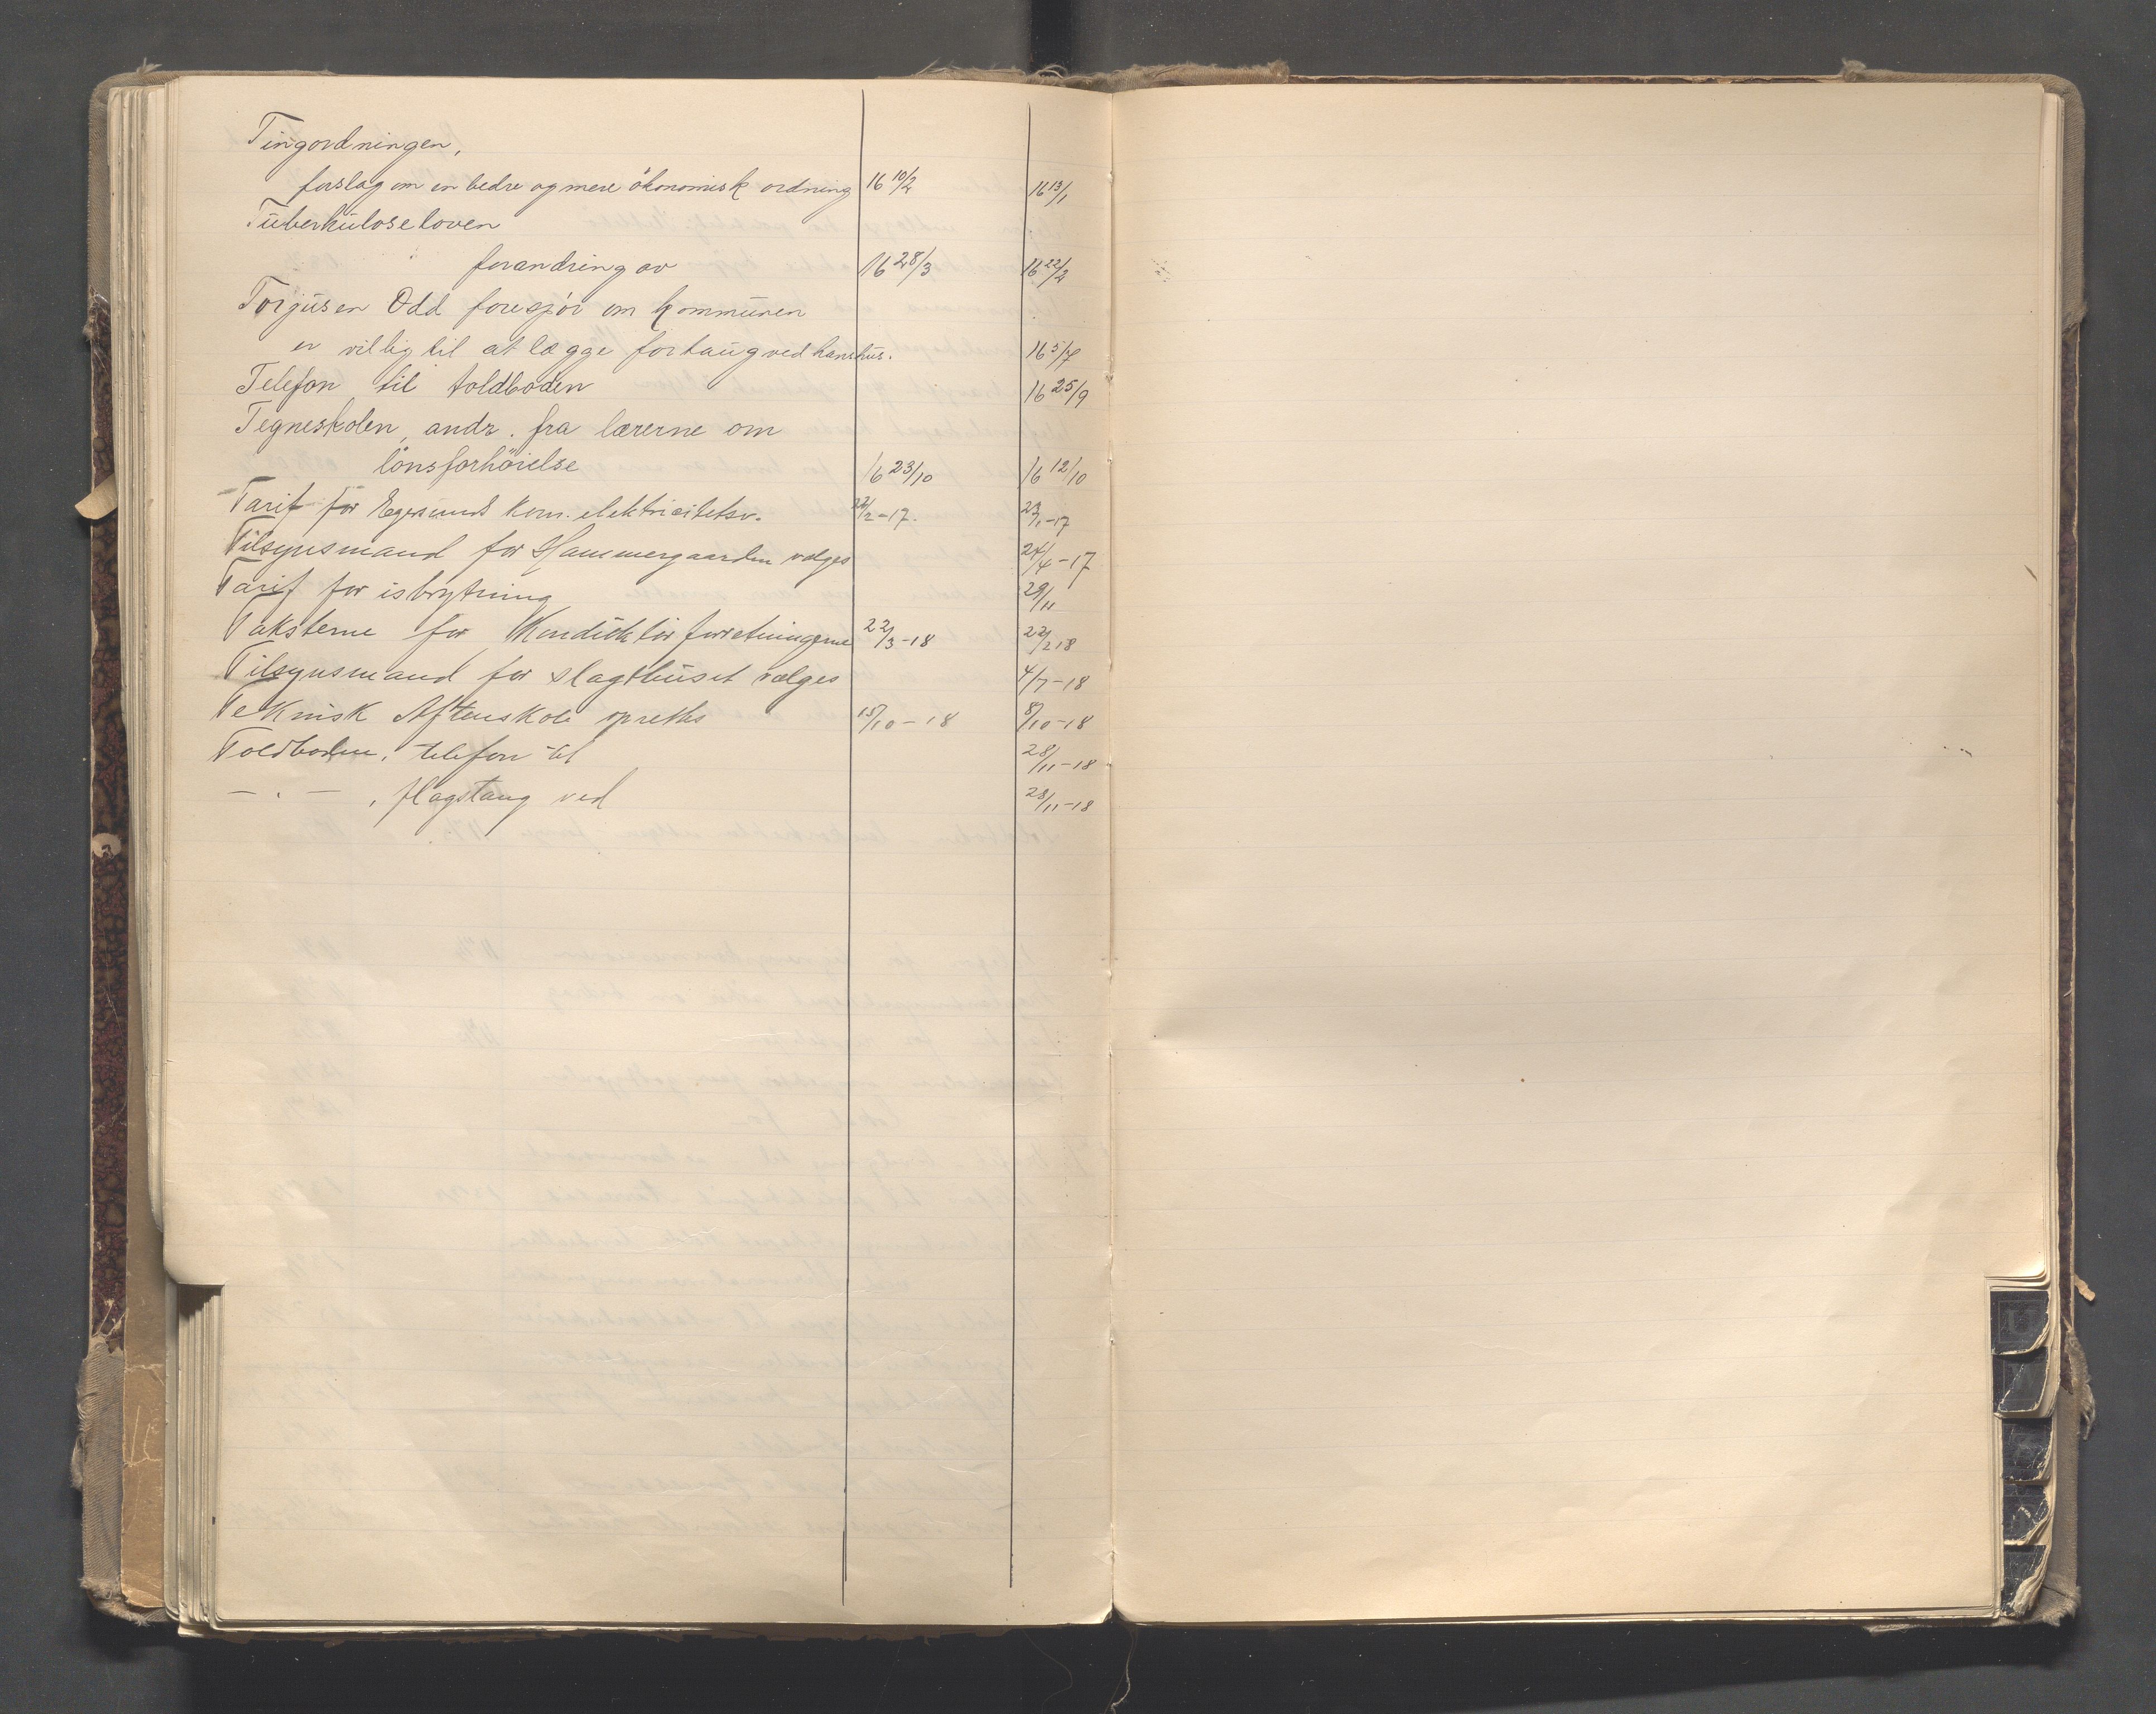 Tingordningen,
forslag om en bedre og mere ökonomisk ordning 16 10/2 16 13/1
Tuberkuloseloven
forandring av 16 28/3 16 22/2
Torgusen Odd forespör om kommunen
er villig til at lægge fortaug ved hans hus. 16 5/7
Telefon til toldboden 16 25/9
Tegneskolen, andr. fra lærerne om
lönsforhöielse 16 23/10 16 12/10
Tarif for Egersunds kom. elektricitetsv. 22/2-17. 23/1-17
Tilsynsmand for Hammergaarden vælges 24/4-17
Tarif for isbrytning 29/11
Taksterne for Konduktörforretningerne 22/3-18 22/2 18
Tilsynsmand for slagthuset vælges 4/7-18
Teknisk Aftenskole oprettes 15/10-18 8/10-18
Toldboden, telefon til 28/11-18
— . — , flagstang ved 28/11-18
U